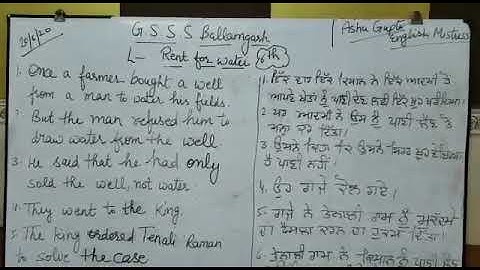 20/6/20
G.S.S.S Ballamgarh
Ashu Gupta
English Mistress
L- Rent for water 6th
1. Once a farmer bought a well
from a man to water his fields.
2. But the man refused him to
draw water from the well.
3. He said that he had only
sold the well, not water.
4. They went to the King.
5. The king ordered Tenali Raman
to solve the case
1. ਇੱਕ ਵਾਰ ਇੱਕ ਕਿਸਾਨ ਨੇ ਇੱਕ ਆਦਮੀ ਤੋਂ
ਆਪਣੇ ਖੇਤਾਂ ਨੂੰ ਪਾਣੀ ਦੇਣ ਲਈ ਇੱਕ ਖੂਹ ਖਰੀਦਿਆ।
2. ਪਰ ਆਦਮੀ ਨੇ ਉਸ ਨੂੰ ਪਾਣੀ ਦੇਣ ਤੋਂ
ਮਨਾ ਕਰ ਦਿੱਤਾ।
3. ਉਸਨੇ ਕਿਹਾ ਕਿ ਉਸਨੇ ਸਿਰਫ ਖੂਹ ਵੇਚਿਆ
ਹੈ ਪਾਣੀ ਨਹੀਂ।
4. ਉਹ ਰਾਜੇ ਕੋਲ ਗਏ।
5. ਰਾਜੇ ਨੇ ਤੇਨਾਲੀ ਰਾਮ ਨੂੰ ਮੁਕੱਦਮੇ
ਦਾ ਫੈਸਲਾ ਕਰਨ ਦਾ ਹੁਕਮ ਦਿੱਤਾ।
6. ਤੇਨਾਲੀ ਰਾਮ ਨੇ ਕਿਸਾਨ ਨੂੰ ਪਾਣੀ